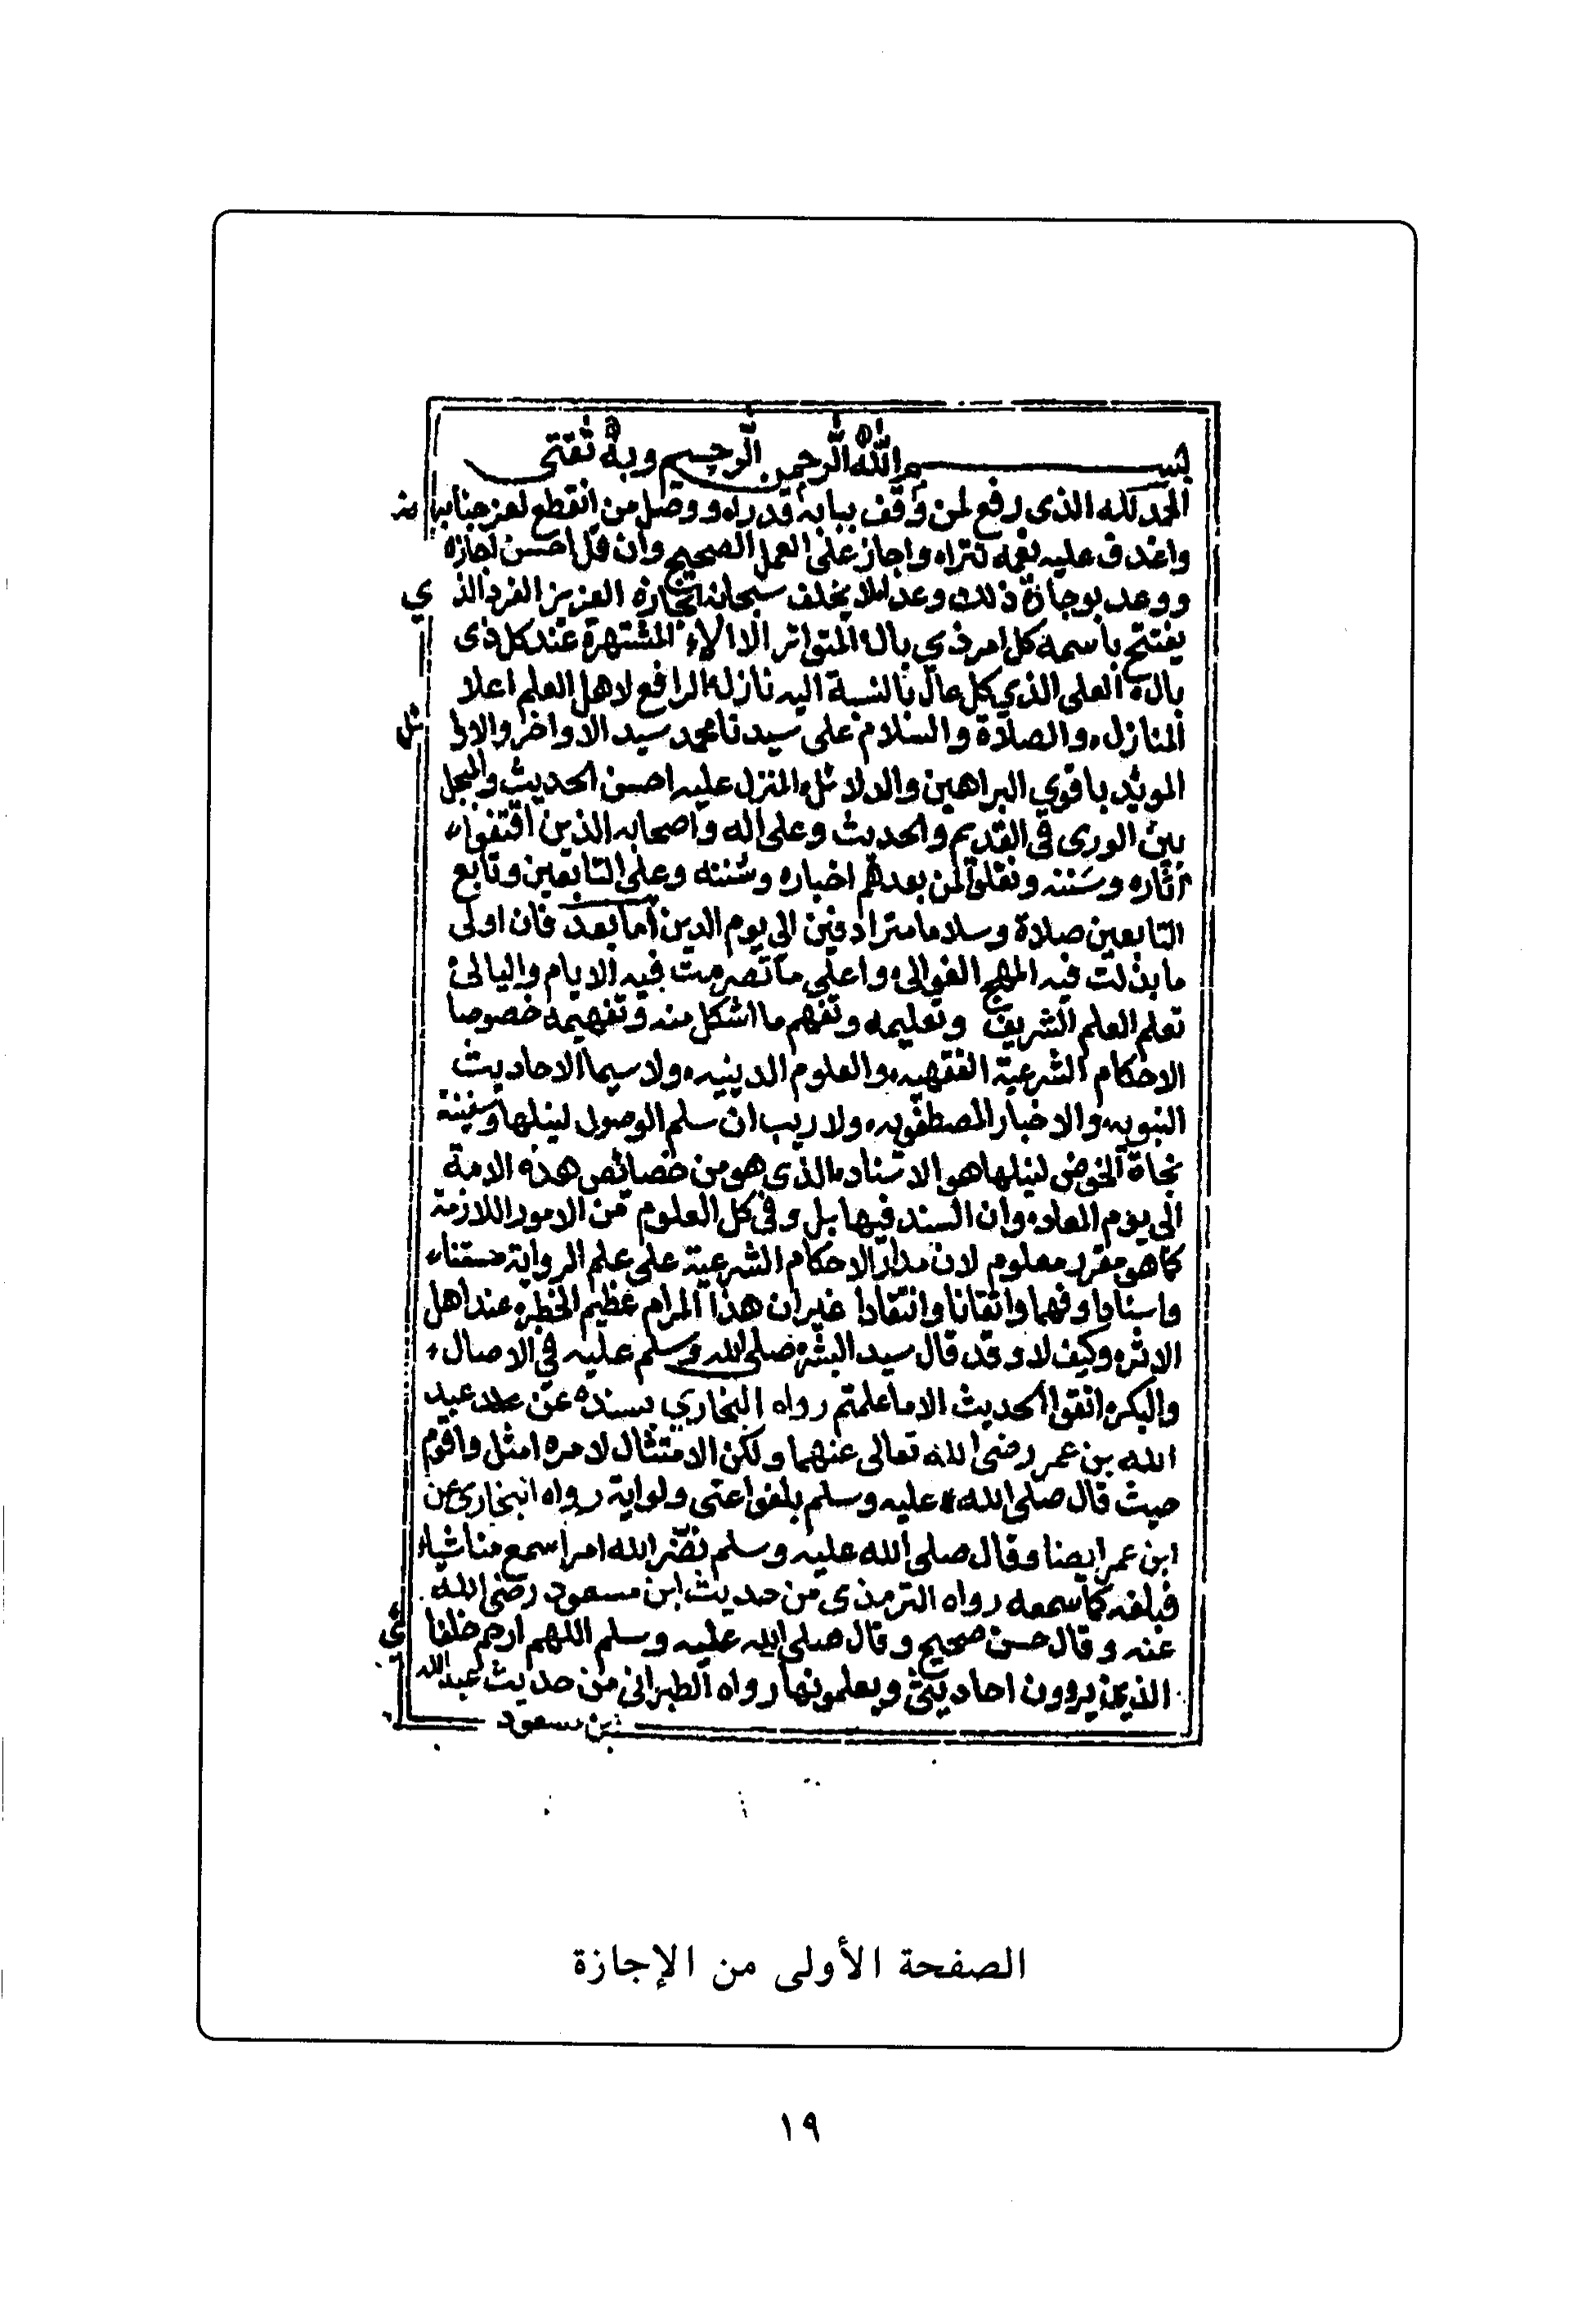 بسم الله الرحمن الرحيم وبه ثقتي
الحمد لله الذى رفع لمن وقف ببابه قدراه ووصل من انقطع لعز جنابه
واغدق عليه نعمه تتراه واجاز على العمل الصحيح وان قل احسن اجازه
ووعد بوجادة ذلك وعدا لا يخلف سبحانه انجازه العزيز الفرد الذي
يفتتح باسمه كل امر ذي بال المتواتر الالاء المشتهرة عند كل ذى
بال العلى الذي كل عال بالنسبة اليه نازل الرافع لاهل العلم اعلا
المنازل والصلاة والسلام على سيدنا محمد سيد الاواخر والاوائل
الموئد باقوي البراهين والدلائل المنزل عليه احسن الحديث والمبجل
بين الورى في القديم والحديث وعلى اله واصحابه الذين اقتفوا
آثاره وسننه ونقلوا لمن بعدهم اخباره وسننه وعلى التابعين وتابع
التابعين صلاة وسلاما مترادفين الي يوم الدين اما بعد فان اولى
ما بذلت فيه المهج الغوالى واعلى ما تصرمت فيه الايام واليالى
تعلم العلم الشريف وتعليمه وتفهم ما اشكل منه وتفهيمه خصوصا
الاحكام الشرعية الفقهيه والعلوم الدينيه ولا سيما الاحاديث
النبويه والاخبار المصطفويه ولا ريب ان سلم الوصول لنيلها وسفينة
نجاة الخوض لنيلها هو الاسناد الذى هو من خصائص هذه الامة
الى يوم المعاد وان السند فيها بل وفي كل العلوم من الامور اللازمة
كما هو مقرر معلوم لان مدار الاحكام الشرعية على علم الرواية متنا
واسنادا وفهما واتقانا وانتقادا غير ان هذا المرام عظيم الخطر عند اهل
الاثر وكيف لا وقد قال سيد البشر صلى الله وسلم عليه في الاصال
والبكر اتقوا الحديث الا ما علمتم رواه البخاري بسنده عن عبد
الله بن عمر رضى الله تعالى عنهما ولكن الامتثال لامره امثل واقوم
حيث قال صلى الله عليه وسلم بلغوا عنى ولو اية رواه البخاري عن
ابن عمر ايضا وقال صلى الله عليه وسلم نضر الله امرا سمع منا شياء
فبلغه كما سمعه رواه الترمذى من حديث ابن مسعود رضى الله
عنه وقال حسن صحيح وقال صلى الله عليه وسلم اللهم ارحم خلفائي
الذين يروون احاديثى ويعلمونها رواه الطبرانى من حديث عبد الله
بن مسعود
الصفحة الأولى من الإجازة
١٩